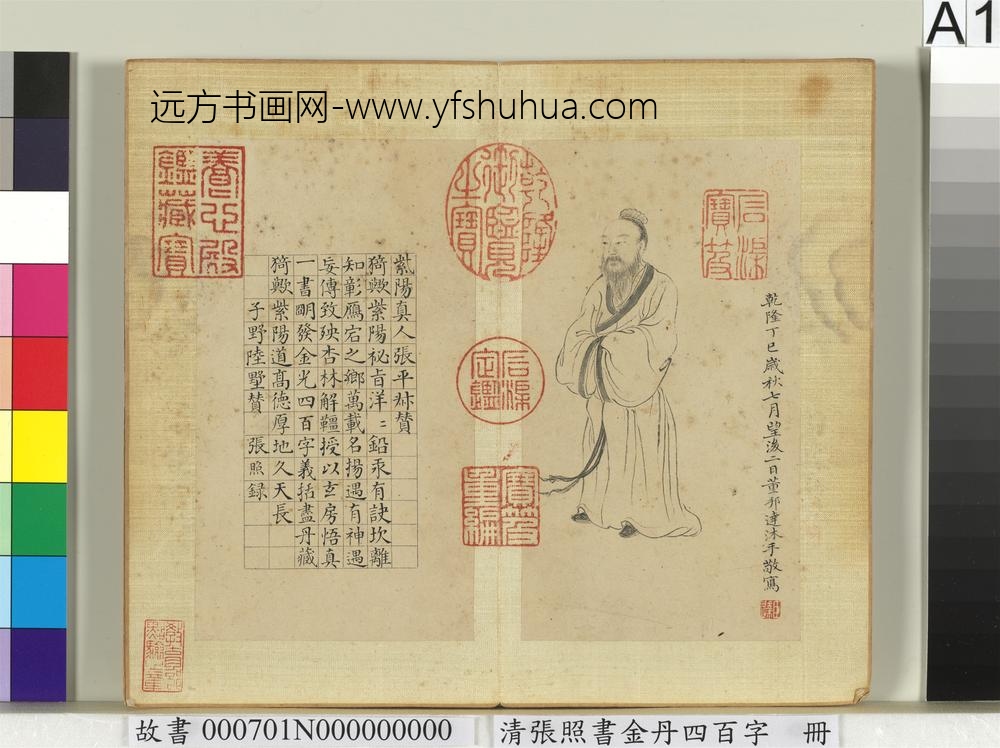 A1
远方书画网-www.yfshuhua.com
石渠寶笈
乾隆丁巳歲秋七月望後二日董邦達沐手敬寫
乾隆御覽之寶
石渠定鑑
寶笈重編
養心殿鑑藏寶
紫陽真人張平叔贊
猗歟紫陽祕旨洋〻鉛汞有訣坎離
知彰鴈宕之鄉萬載名揚遇有神遇
妄傳致殃杏林解韁授以玄房悟真
一書明發金光四百字義括盡丹藏
猗歟紫陽道髙德厚地久天長
子野陸墅贊 張照録
教育部點驗之章
故書 000701N000000000
清張照書金丹四百字 冊